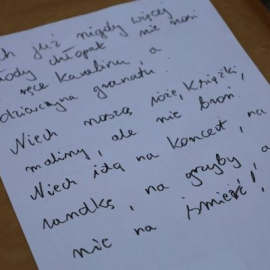 już nigdy więcej
młody chłopak nie nosi
ręce karabinu, a
dziewczyna granatu.
Niech noszą róże, książki,
maliny, ale nie broń.
Niech idą na koncert, na
randkę, na grzyby, a
nie na śmierć!